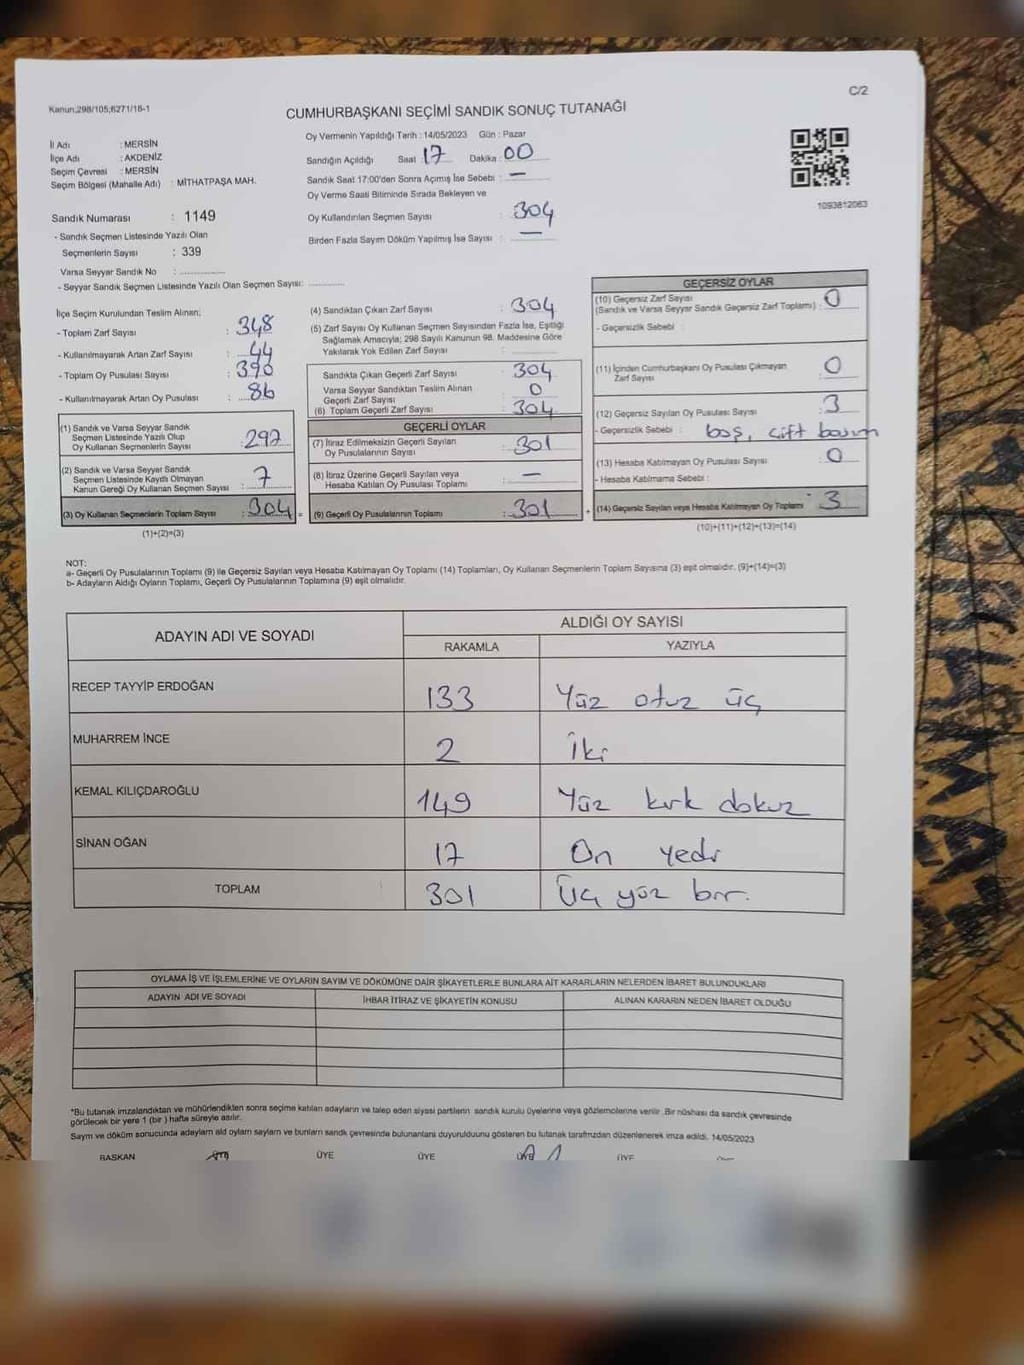 Kanun:298/105;6271/18-1
C/2
CUMHURBAŞKANI SEÇİMİ SANDIK SONUÇ TUTANAĞI
İl Adı : MERSİN
İlçe Adı : AKDENİZ
Seçim Çevresi : MERSİN
Seçim Bölgesi (Mahalle Adı) : MİTHATPAŞA MAH.
Sandık Numarası : 1149
- Sandık Seçmen Listesinde Yazılı Olan
Seçmenlerin Sayısı : 339
Varsa Seyyar Sandık No :
- Seyyar Sandık Seçmen Listesinde Yazılı Olan Seçmen Sayısı:
Oy Vermenin Yapıldığı Tarih : 14/05/2023 Gün : Pazar
Sandığın Açıldığı Saat 17 Dakika : 00
Sandık Saat 17:00'den Sonra Açılmış İse Sebebi : —
Oy Verme Saati Bitiminde Sırada Bekleyen ve
Oy Kullandırılan Seçmen Sayısı : 304
Birden Fazla Sayım Döküm Yapılmış İse Sayısı : —
1093812063
İlçe Seçim Kurulundan Teslim Alınan;
- Toplam Zarf Sayısı : 348
- Kullanılmayarak Artan Zarf Sayısı : 44
- Toplam Oy Pusulası Sayısı : 390
- Kullanılmayarak Artan Oy Pusulası : 86
(1) Sandık ve Varsa Seyyar Sandık
Seçmen Listesinde Yazılı Olup
Oy Kullanan Seçmenlerin Sayısı : 297
(2) Sandık ve Varsa Seyyar Sandık
Seçmen Listesinde Kayıtlı Olmayan
Kanun Gereği Oy Kullanan Seçmen Sayısı : 7
(3) Oy Kullanan Seçmenlerin Toplam Sayısı : 304
(1)+(2)=(3)
(4) Sandıktan Çıkan Zarf Sayısı : 304
(5) Zarf Sayısı Oy Kullanan Seçmen Sayısından Fazla İse, Eşitliği
Sağlamak Amacıyla; 298 Sayılı Kanunun 98. Maddesine Göre
Yakılarak Yok Edilen Zarf Sayısı :
Sandıkta Çıkan Geçerli Zarf Sayısı : 304
Varsa Seyyar Sandıktan Teslim Alınan
Geçerli Zarf Sayısı : 0
(6) Toplam Geçerli Zarf Sayısı : 304
GEÇERLİ OYLAR
(7) İtiraz Edilmeksizin Geçerli Sayılan
Oy Pusulalarının Sayısı : 301
(8) İtiraz Üzerine Geçerli Sayılan veya
Hesaba Katılan Oy Pusulası Toplamı : —
(9) Geçerli Oy Pusulalarının Toplamı : 301
GEÇERSİZ OYLAR
(10) Geçersiz Zarf Sayısı
(Sandık ve Varsa Seyyar Sandık Geçersiz Zarf Toplamı) : 0
- Geçersizlik Sebebi :
(11) İçinden Cumhurbaşkanı Oy Pusulası Çıkmayan
Zarf Sayısı : 0
(12) Geçersiz Sayılan Oy Pusulası Sayısı : 3
- Geçersizlik Sebebi : boş, çift basım
(13) Hesaba Katılmayan Oy Pusulası Sayısı : 0
- Hesaba Katılmama Sebebi :
(14) Geçersiz Sayılan veya Hesaba Katılmayan Oy Toplamı : 3
(10)+(11)+(12)+(13)=(14)
NOT:
a- Geçerli Oy Pusulalarının Toplamı (9) ile Geçersiz Sayılan veya Hesaba Katılmayan Oy Toplamı (14) Toplamları, Oy Kullanan Seçmenlerin Toplam Sayısına (3) eşit olmalıdır. (9)+(14)=(3)
b- Adayların Aldığı Oyların Toplamı, Geçerli Oy Pusulalarının Toplamına (9) eşit olmalıdır.
ADAYIN ADI VE SOYADI
ALDIĞI OY SAYISI
RAKAMLA YAZIYLA
RECEP TAYYİP ERDOĞAN 133 Yüz otuz üç
MUHARREM İNCE 2 İki
KEMAL KILIÇDAROĞLU 149 Yüz kırk dokuz
SİNAN OĞAN 17 On yedi
TOPLAM 301 Üç yüz bir.
OYLAMA İŞ VE İŞLEMLERİNE VE OYLARIN SAYIM VE DÖKÜMÜNE DAİR ŞİKAYETLERLE BUNLARA AİT KARARLARIN NELERDEN İBARET BULUNDUKLARI
ADAYIN ADI VE SOYADI İHBAR İTİRAZ VE ŞİKAYETİN KONUSU ALINAN KARARIN NEDEN İBARET OLDUĞU
*Bu tutanak imzalandıktan ve mühürlendikten sonra seçime katılan adayların ve talep eden siyasi partilerin sandık kurulu üyelerine veya gözlemcilerine verilir .Bir nüshası da sandık çevresinde
görülecek bir yere 1 (bir ) hafta süreyle asılır.
Sayım ve döküm sonucunda adayların aldı oyların sayıların ve bunların sandık çevresinde bulunanlara duyurulduunu gösteren bu tutanak tarafımızdan düzenlenerek imza edildi. 14/05/2023
BAŞKAN ÜYE ÜYE ÜYE ÜYE